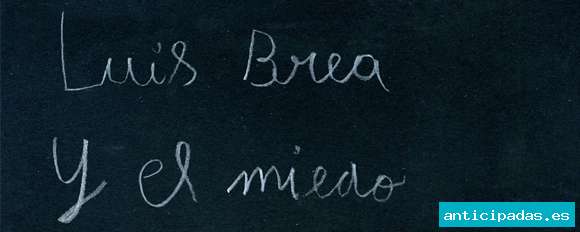 Luis Brea
Y el miedo
anticipadas.es